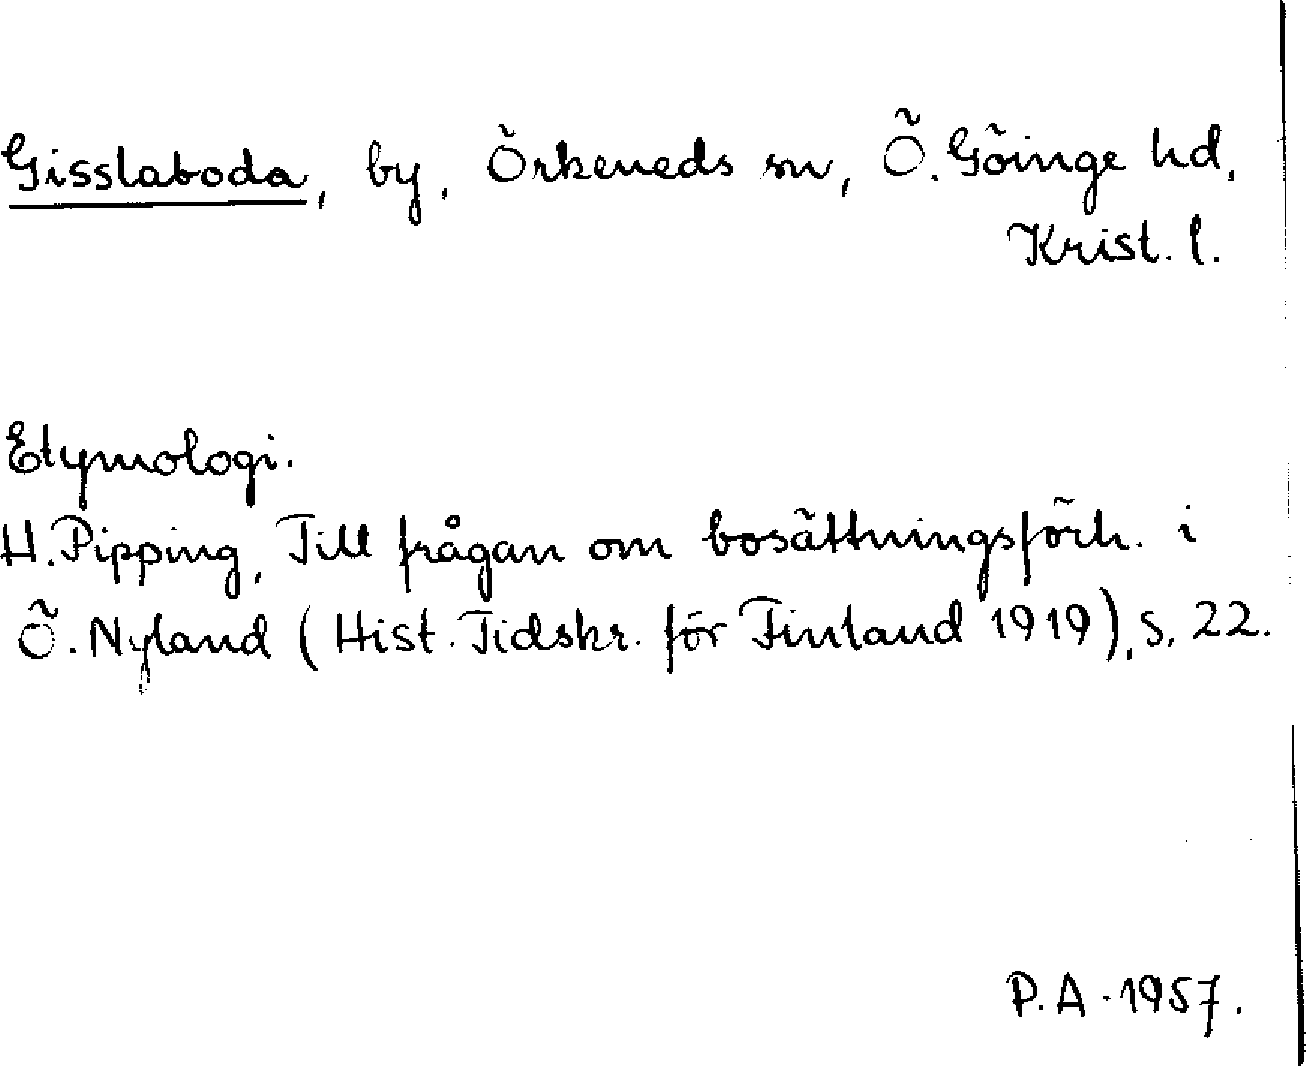 Gisslaboda, by, Örkeneds sn, Ö. Göinge hd,
Krist. l.
Etymologi.
H. Pipping, Till frågan om bosättningsförh. i
Ö. Nyland (Hist. Tidskr. för Finland 1919), s. 22.
P. A. 1957.